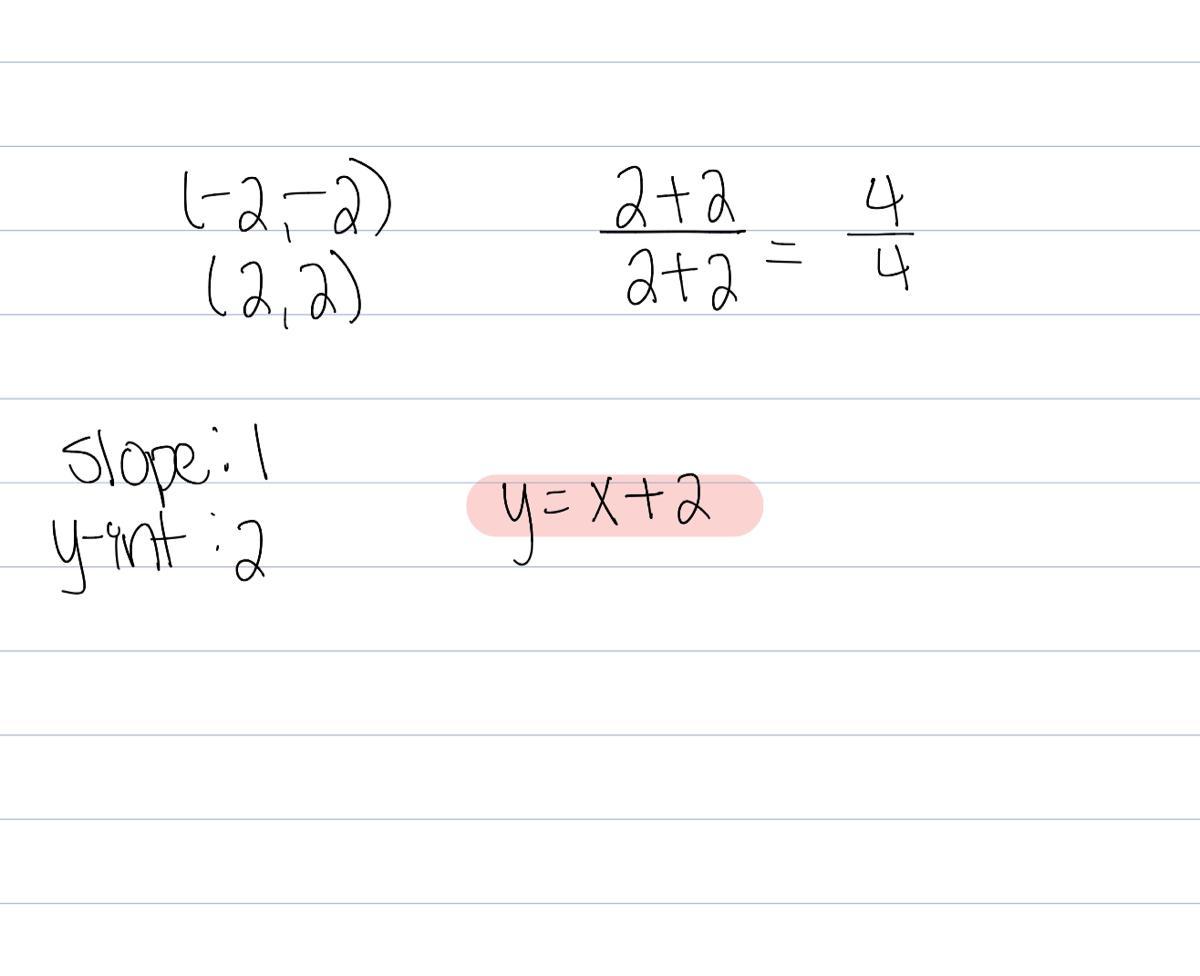 (-2,-2)
(2,2)
2+2
2+2
=
4
4
slope: 1
y-int : 2
y=x+2